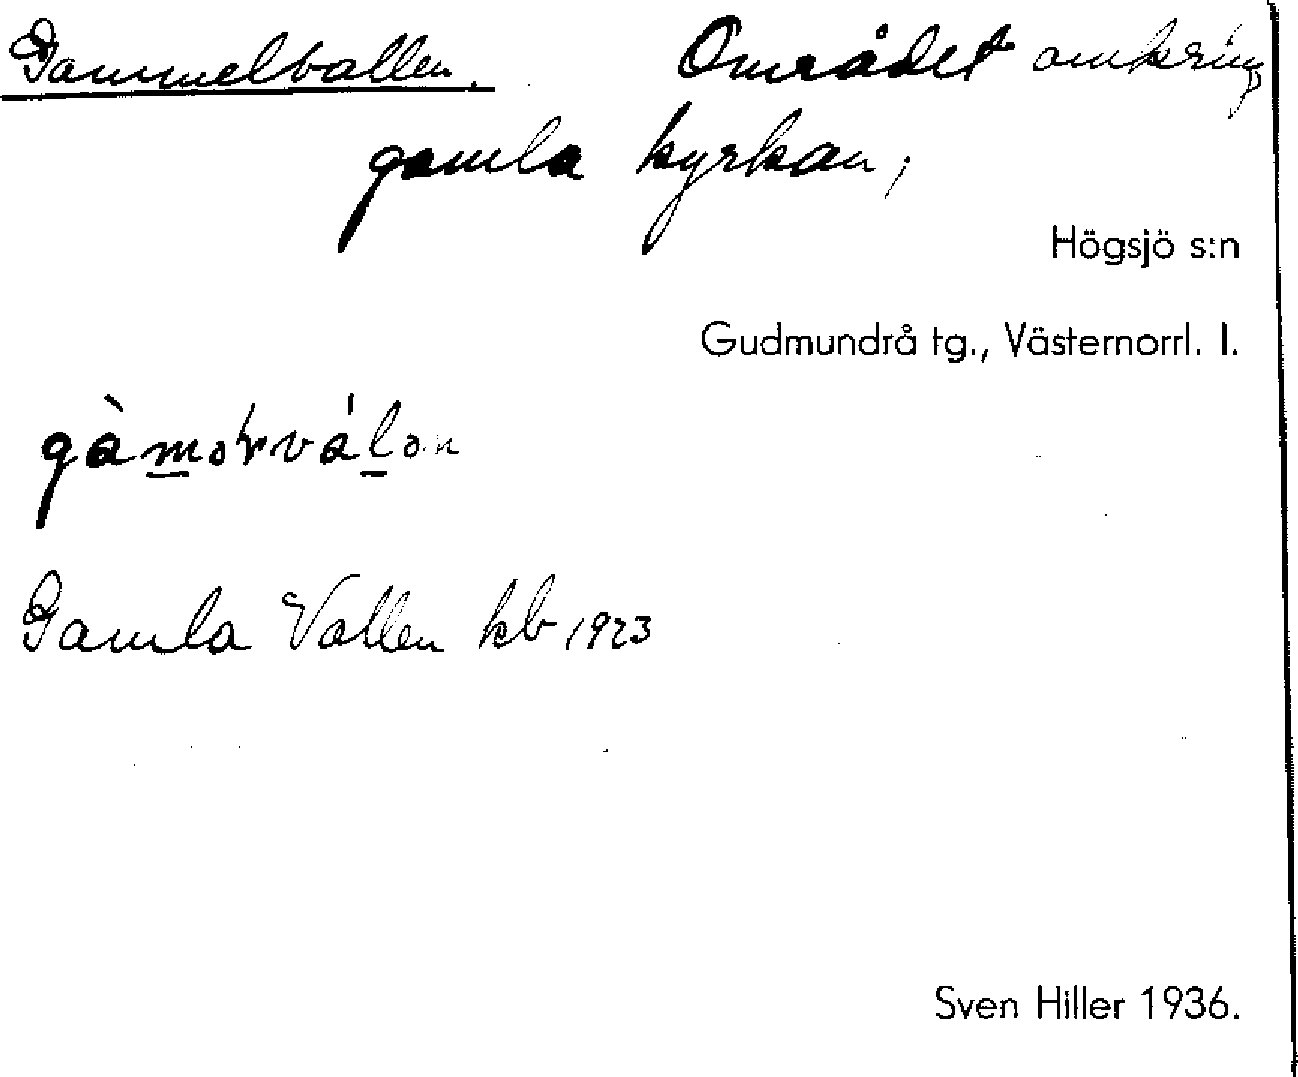 Gammelvallen. Området omkring
gamla kyrkan,
Högsjö s:n
Gudmundrå tg., Västernorrl. l.
Gamla Vallen kb 1923
Sven Hiller 1936.